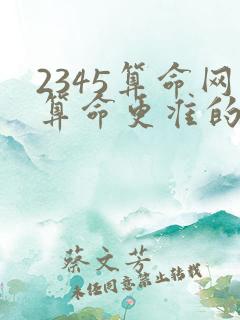 2345算命网
算命更准的
蔡文芳
未经同意禁止转载